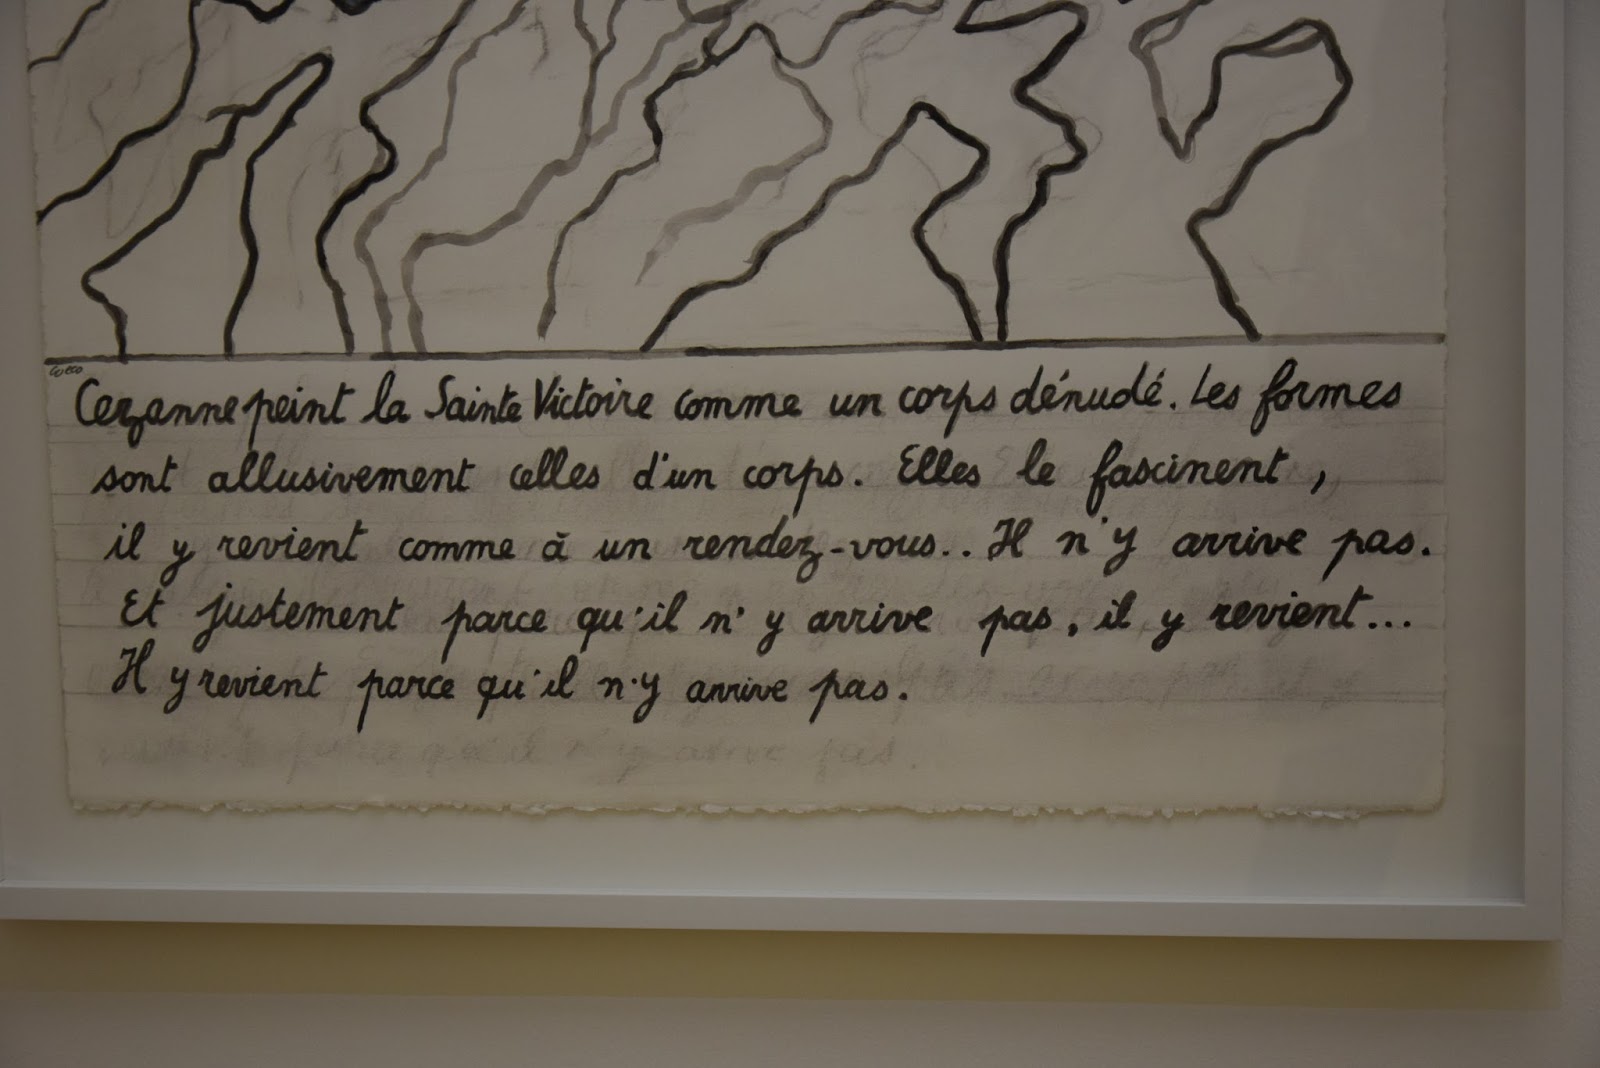 Cueco
Cezanne peint la Sainte Victoire comme un corps dénudé. Les formes
sont allusivement celles d'un corps. Elles le fascinent,
il y revient comme à un rendez-vous.. Il n'y arrive pas.
Et justement parce qu'il n'y arrive pas, il y revient...
Il y revient parce qu'il n'y arrive pas.
parce qu'il n'y arrive pas.